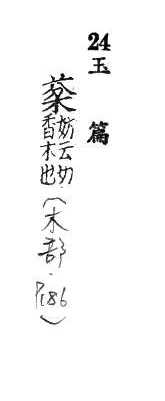 24玉篇
棻妨云切香木也（木部·P186）